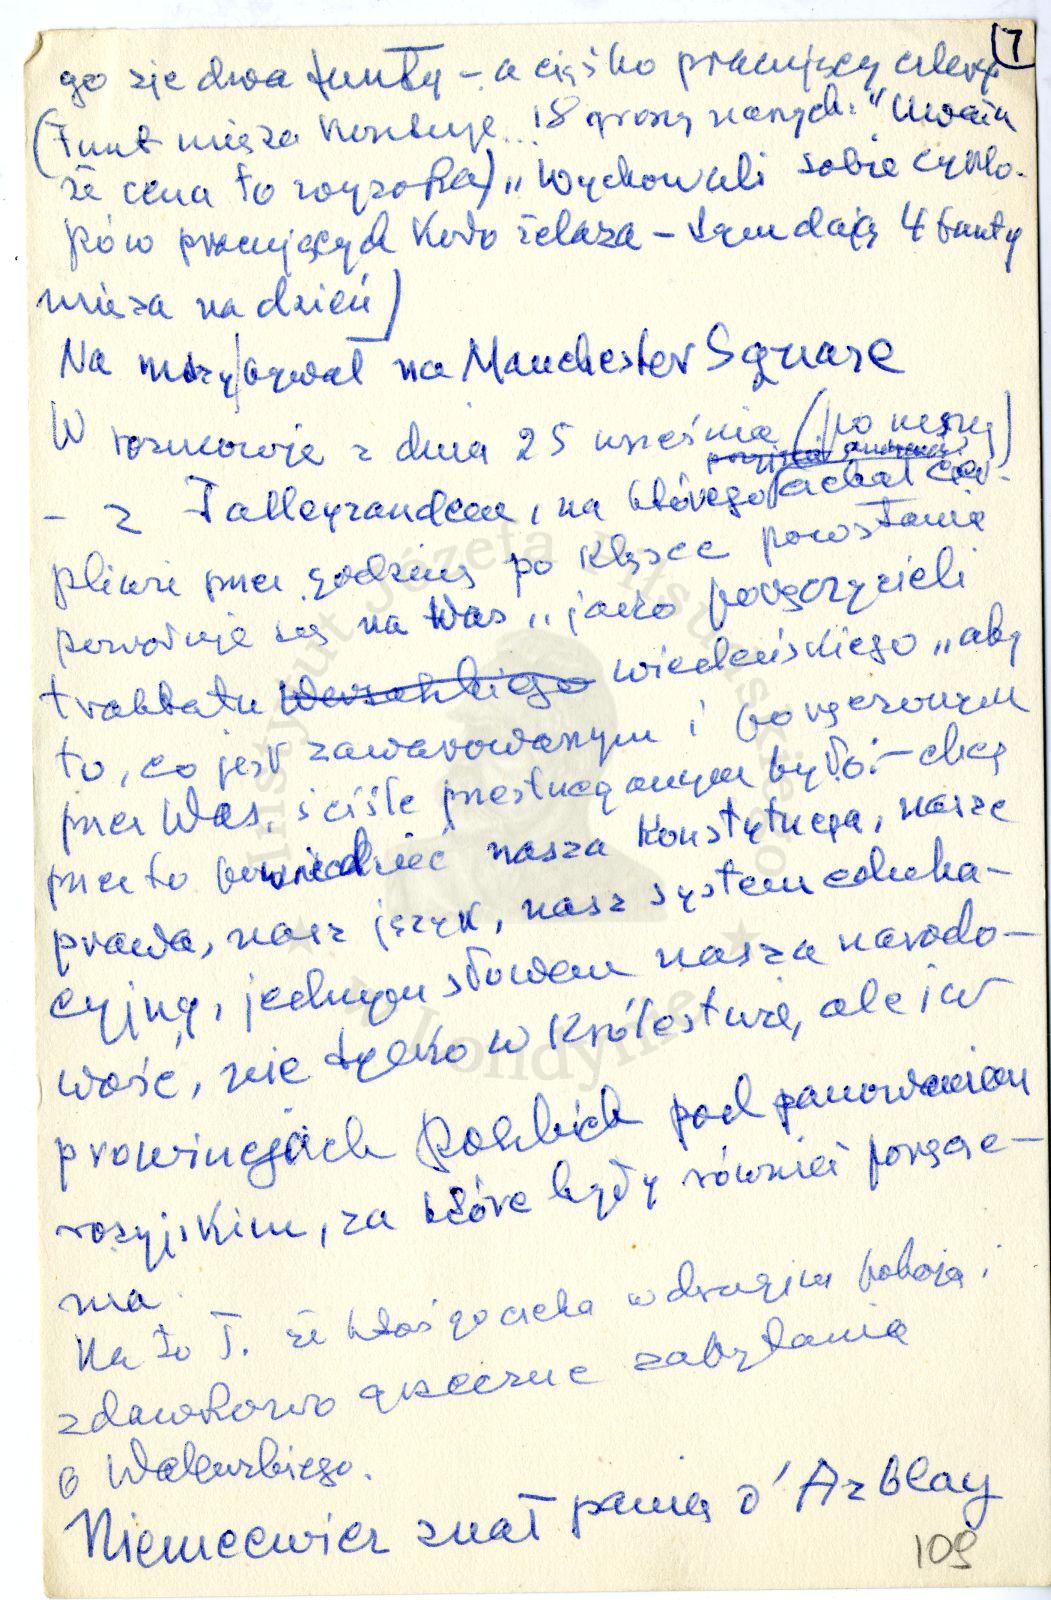 7
go zje dwa funty – a ciężko pracujący człowiek
(Funt mięsa kosztuje... 18 groszy naszych." Uważa
że cena to wysoka) „Wychowali sobie cyklo-
pów pracujących koło żelaza – tym dają 4 funty
mięsa na dzień)
Na mszy bywał na Manchester Square
W rozmowie z dnia 25 września (po mszy)
– z Talleyrandem, na którego czekał cier-
pliwie przez godzinę po klęsce powstania
powołuje się na Was „jako poręczycieli
traktatu Wersalskiego wiedeńskiego „aby
to, co jest zawarowanym i poręczonym
przez Was, ściśle przestrzeganym było: – chcę
przez to powiedzieć nasza Konstytucja, nasze
prawa, nasz język, nasz system eduka-
cyjny, jednym słowem nasza narodo-
wość, nie tylko w Królestwie, ale i w
prowincjach Polskich pod panowaniem
rosyjskim, za które były również poręcze-
nia.
Na to T. że ktoś go czeka w drugim pokoju i
zdawkowo grzeczne zapytania
o Walewskiego.
Niemcewicz znał panią d'Arblay
109
Instytut Józefa Piłsudskiego
w Londynie